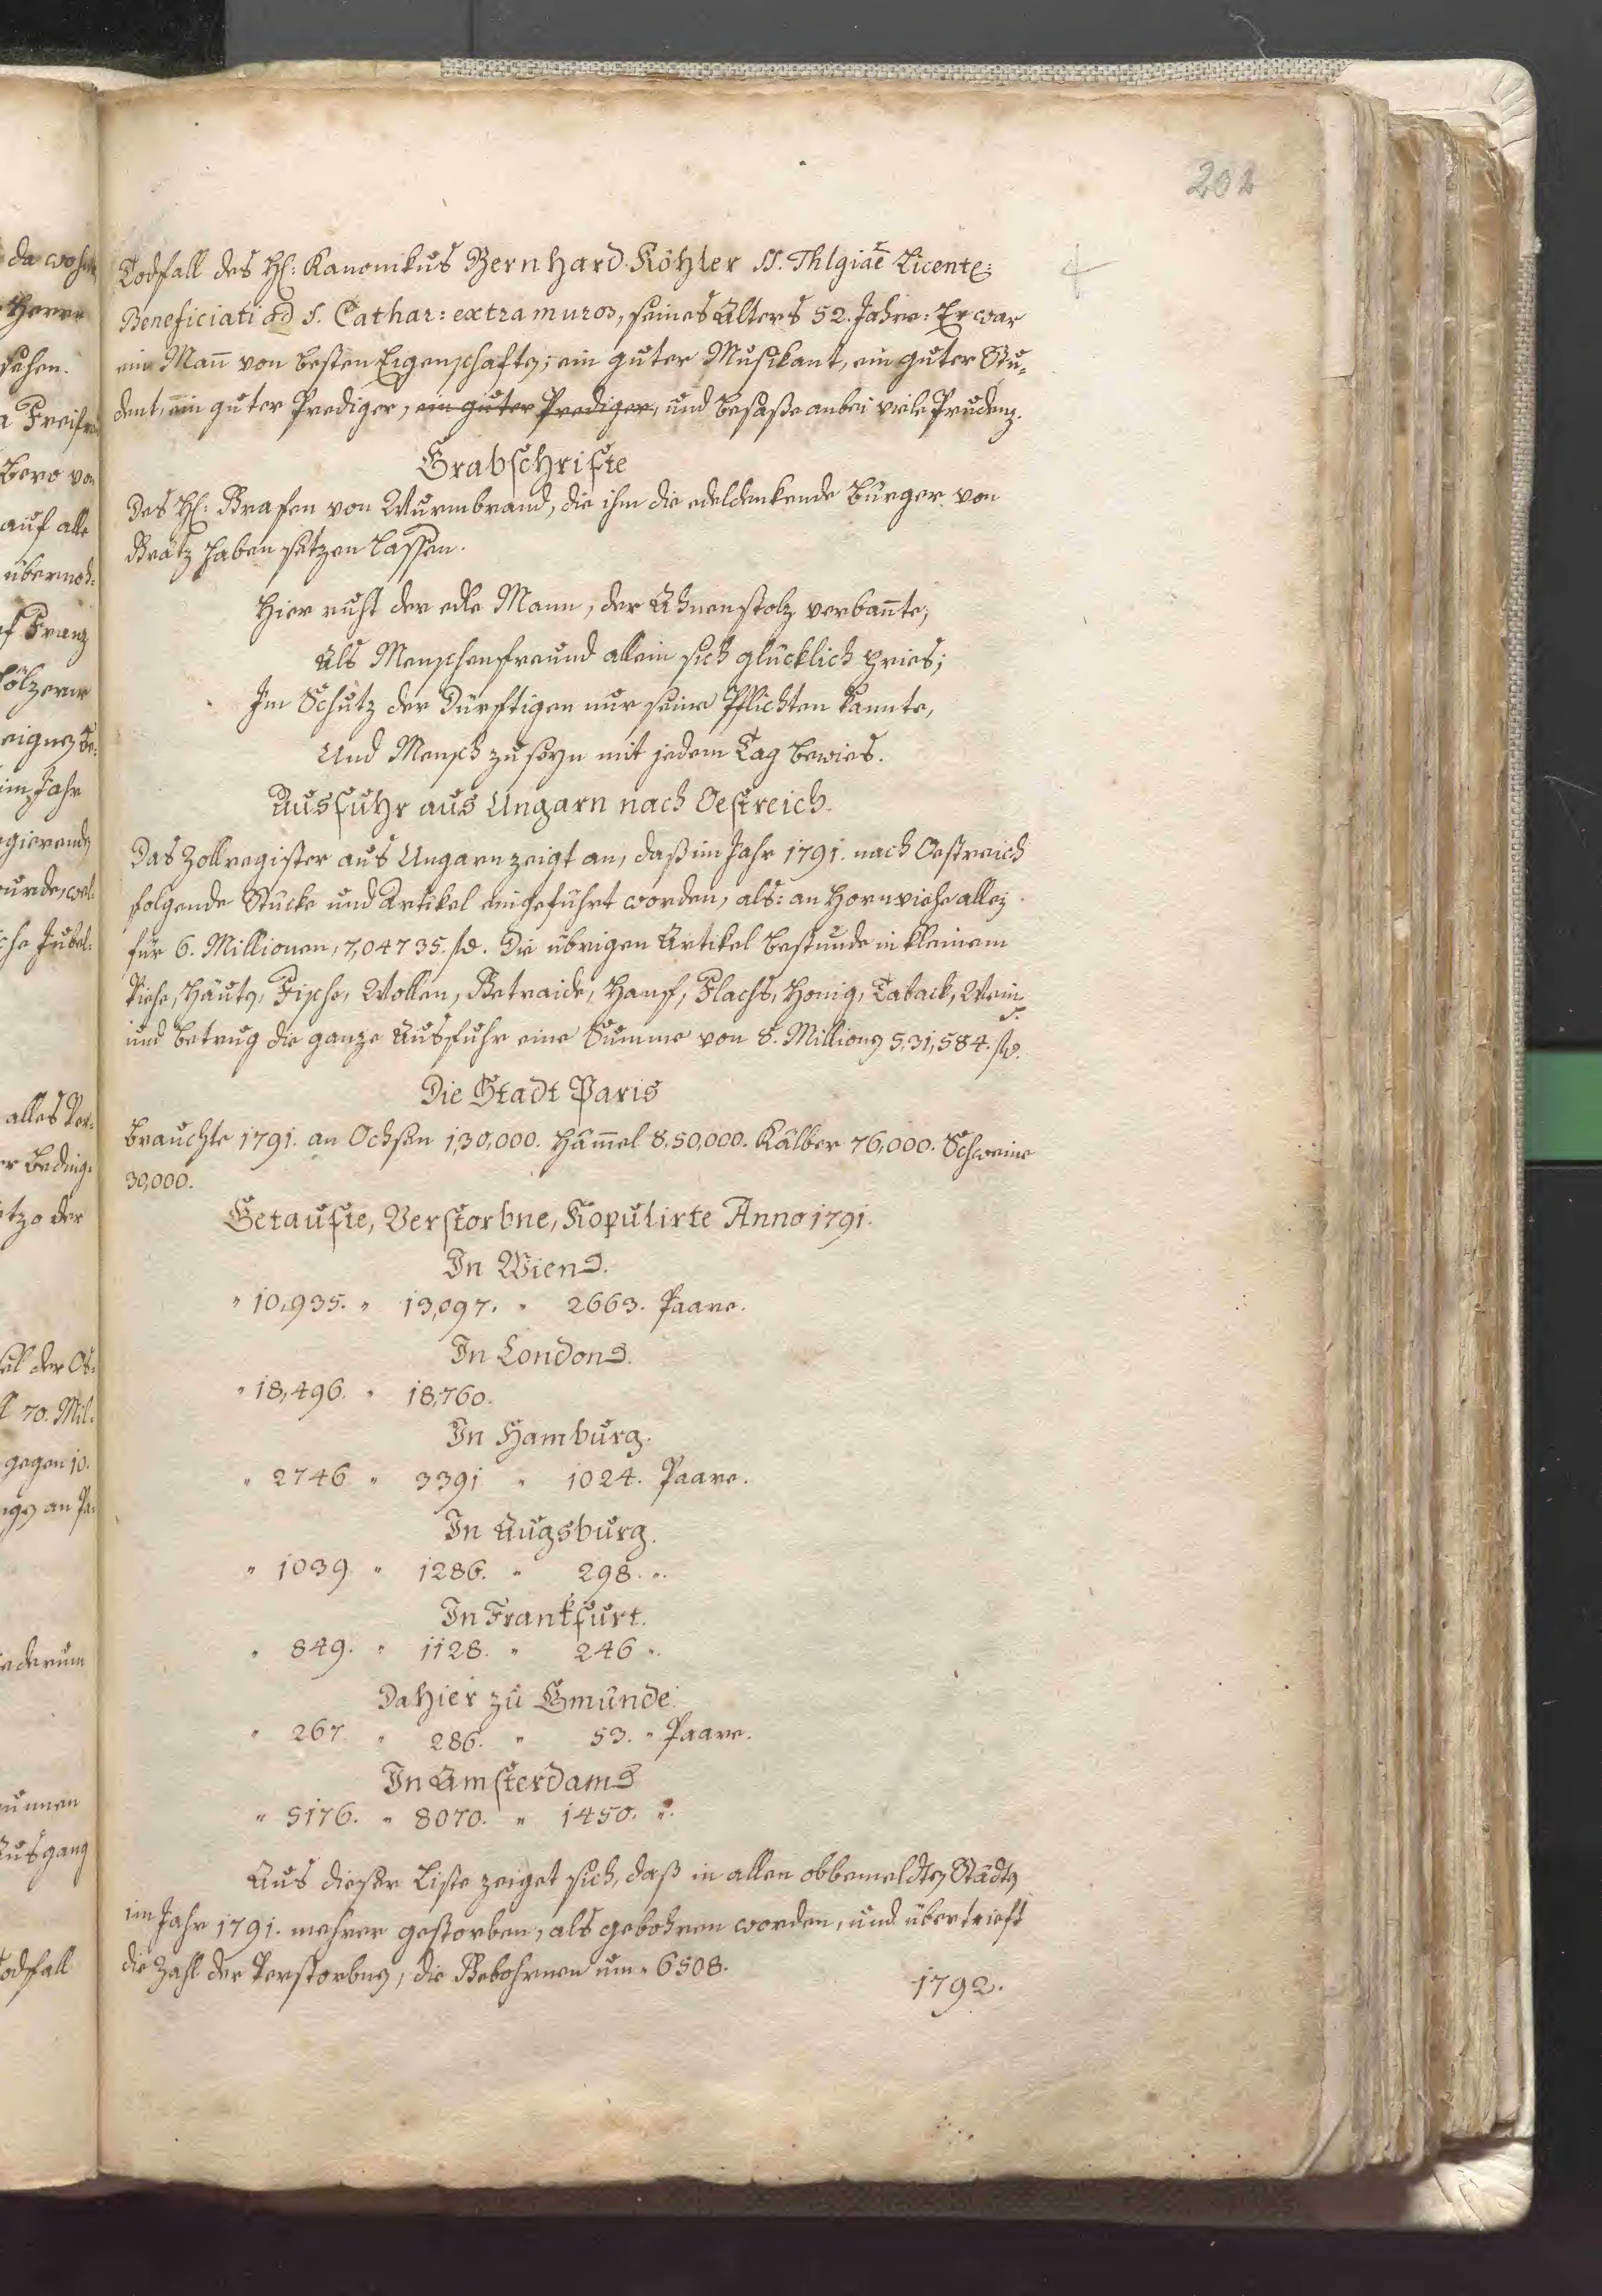 202
Todfall des H: Kanonikus Bernhard Köhler SS. Thlgiae Licent:
Beneficiati ad S. Cathar: extra muros, seines Alters 52. Jahre: Er war
ein Mañ von besten Eigenschaften; ein guter Musikant, ein guter Stu-
dent, ein guter Prediger, ein guter Prediger, und besaße anbei viele Prudenz.
Grabschrifte
Des H: Grafen von Wurmbrand, die ihm die edeldenkende Bürger von
Grätz haben setzen lassen.
Hier ruht der edle Mann, der Ahnenstolz verbañte;
Als Menschenfreund allein sich glücklich pries;
Im Schutz der Dürftigen nur seine Pflichten kannte,
Und Mensch zu seyn mit jedem Tag bewies.
Ausfuhr aus Ungarn nach Oestreich.
Das Zollregister aus Ungarn zeigt an, daß im Jahr 1791. nach Oestreich
folgende Stücke und Artikel eingeführt worden, als: an Hornviehe allein
für 6. Millionen, 7,04735. fl. Die übrigen Artikel bestunde in kleinem
Viehe, Häuten, Fische, Wollen, Getraide, Hanf, Flachs, Honig, Taback, Wein
und betrug die ganze Ausfuhr eine Summe von 8. Millionen 5,31,584. fl.
Die Stadt Paris
Brauchte 1791. an Ochsen 1,30,000. Häm̃el 8,50,000. Kälber 76,000. Schweine
30,000.
Getaufte, Verstorbne, Kopulirte Anno 1791.
In Wien.
" 10,935. " 13,097. " 2663. Paare.
In London.
" 18,496. " 18,760.
In Hamburg.
" 2746 " 3391 " 1024. Paare.
In Augsburg.
" 1039 " 1286. " 298. ".
In Frankfurt.
" 849. " 1128. " 246 ".
Dahier zu Gmünde.
" 267 " 286. " 53. " Paare.
In Amsterdam
" 5176. " 8070. " 1450. ".
Aus dieser Liste zeiget sich, daß in allen obbemeldten Städten
im Jahr 1791. mehrer gestorben, als gebohren worden, und übertrieft
die Zahl der Verstorbnen, die Gebohrnen um " 6508.
1792.